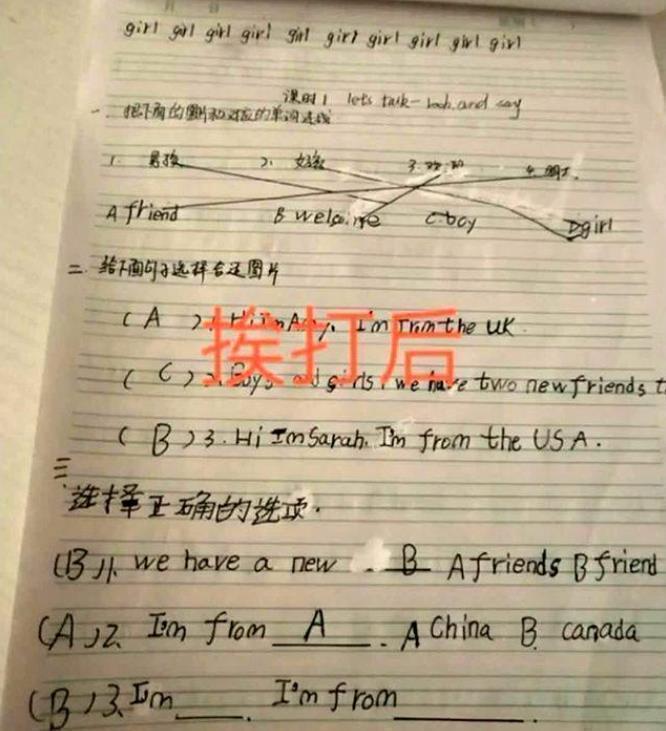 girl girl girl girl girl girl girl girl girl girl
课时1 let's talk-look and say
一、把下面的图片和对应的单词连线
1. 男孩 2. 女孩 3. 欢迎 4. 朋友.
A friend B welcome C boy D girl
二. 给下面句子选择合适图片
(A) 1. Hi I'm Amy. I'm from the UK.
挨打后
(C) 2. Boys and girls, we have two new friends t
(B) 3. Hi I'm Sarah. I'm from the USA.
三
选择正确的选项.
(B) 1. we have a new B A friends B friend
(A) 2. I'm from A. A China B. canada
(B) 3. I'm ___. I'm from ___